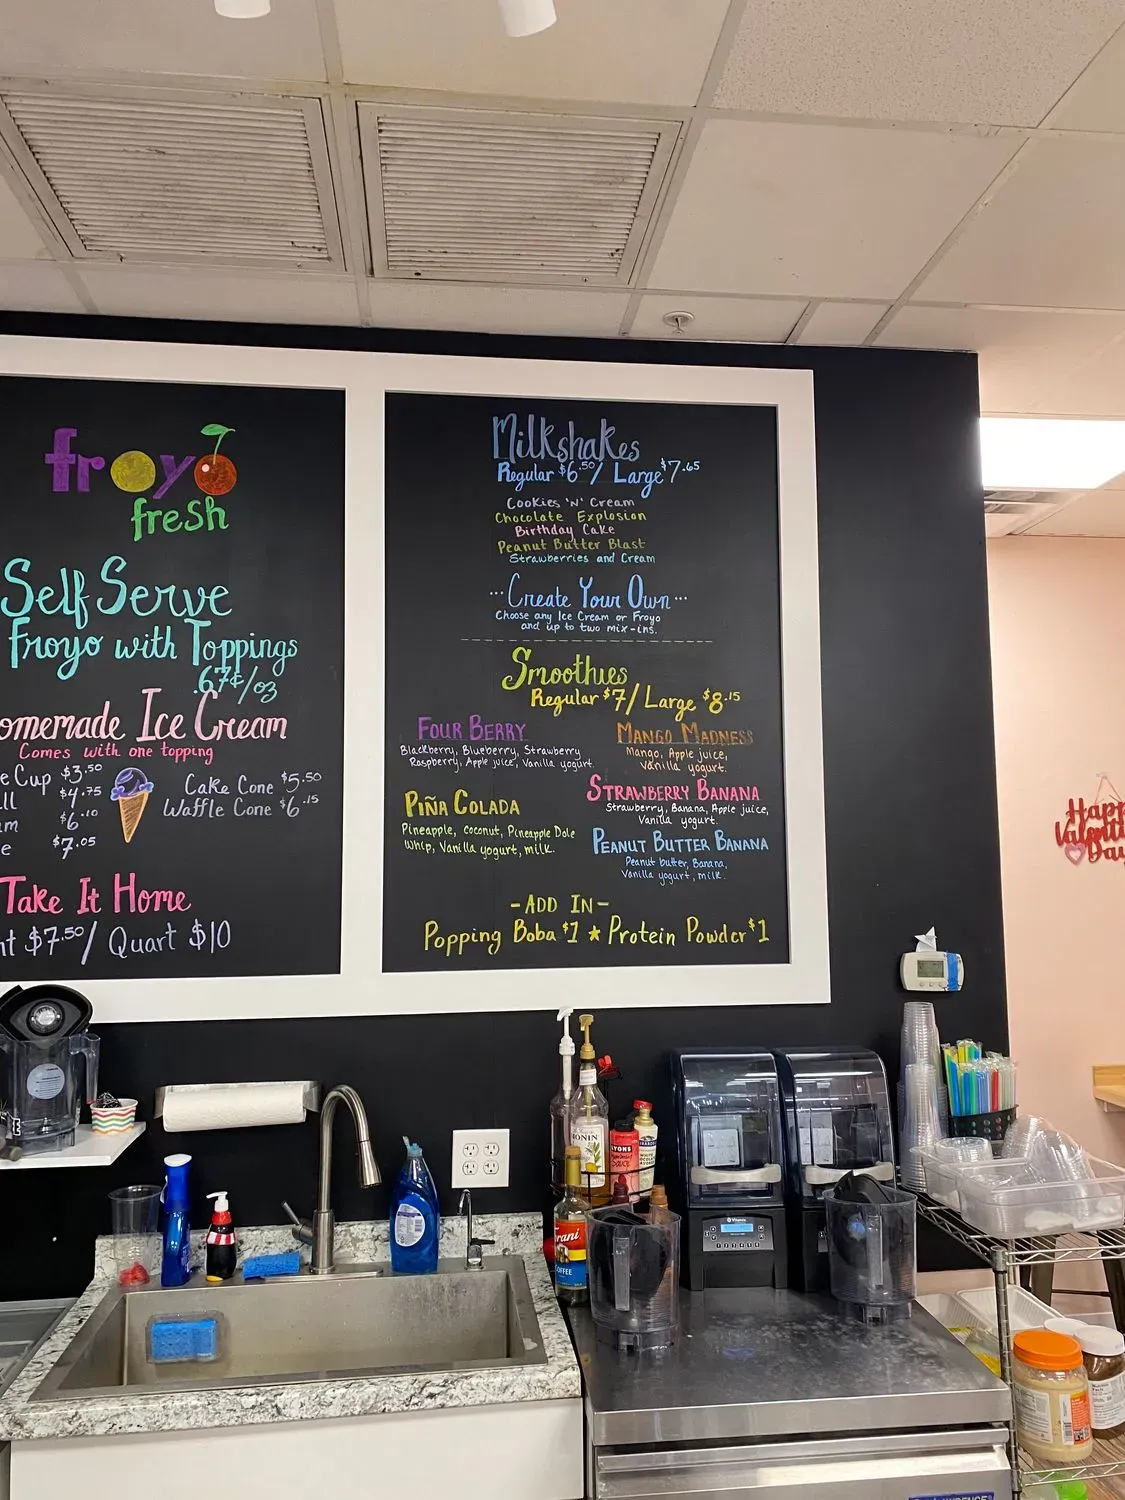 froyo
fresh
Self Serve
Froyo with Toppings
.67¢/oz
Ice Cream
Comes with one topping
Cup $3.50
$4.75
$6.10
$7.05
Cake Cone $5.50
Waffle Cone $6.15
Take It Home
$7.50/ Quart $10
Milkshakes
Regular $6.50/ Large $7.65
Cookies 'N' Cream
Chocolate Explosion
Birthday Cake
Peanut Butter Blast
Strawberries and Cream
...Create Your Own...
Choose any Ice Cream or Froyo
and up to two mix-ins.
Smoothies
Regular $7/ Large $8.15
FOUR BERRY
Blackberry, Blueberry, Strawberry
Raspberry, Apple juice, Vanilla yogurt.
MANGO MADNESS
Mango, Apple juice,
Vanilla yogurt.
STRAWBERRY BANANA
Strawberry, Banana, Apple juice,
Vanilla yogurt.
PIÑA COLADA
Pineapple, coconut, Pineapple Dole
Whip, Vanilla yogurt, milk.
PEANUT BUTTER BANANA
Peanut butter, Banana,
Vanilla yogurt, milk.
-ADD IN-
Popping Boba $1 ★ Protein Powder $1
Happy
Valentine
Day